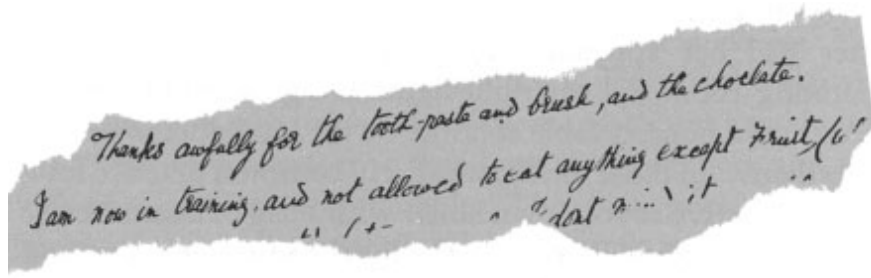 Thanks awfully for the tooth-paste and brush, and the choclate.
I am now in training, and not allowed to eat anything except Fruit
I dont